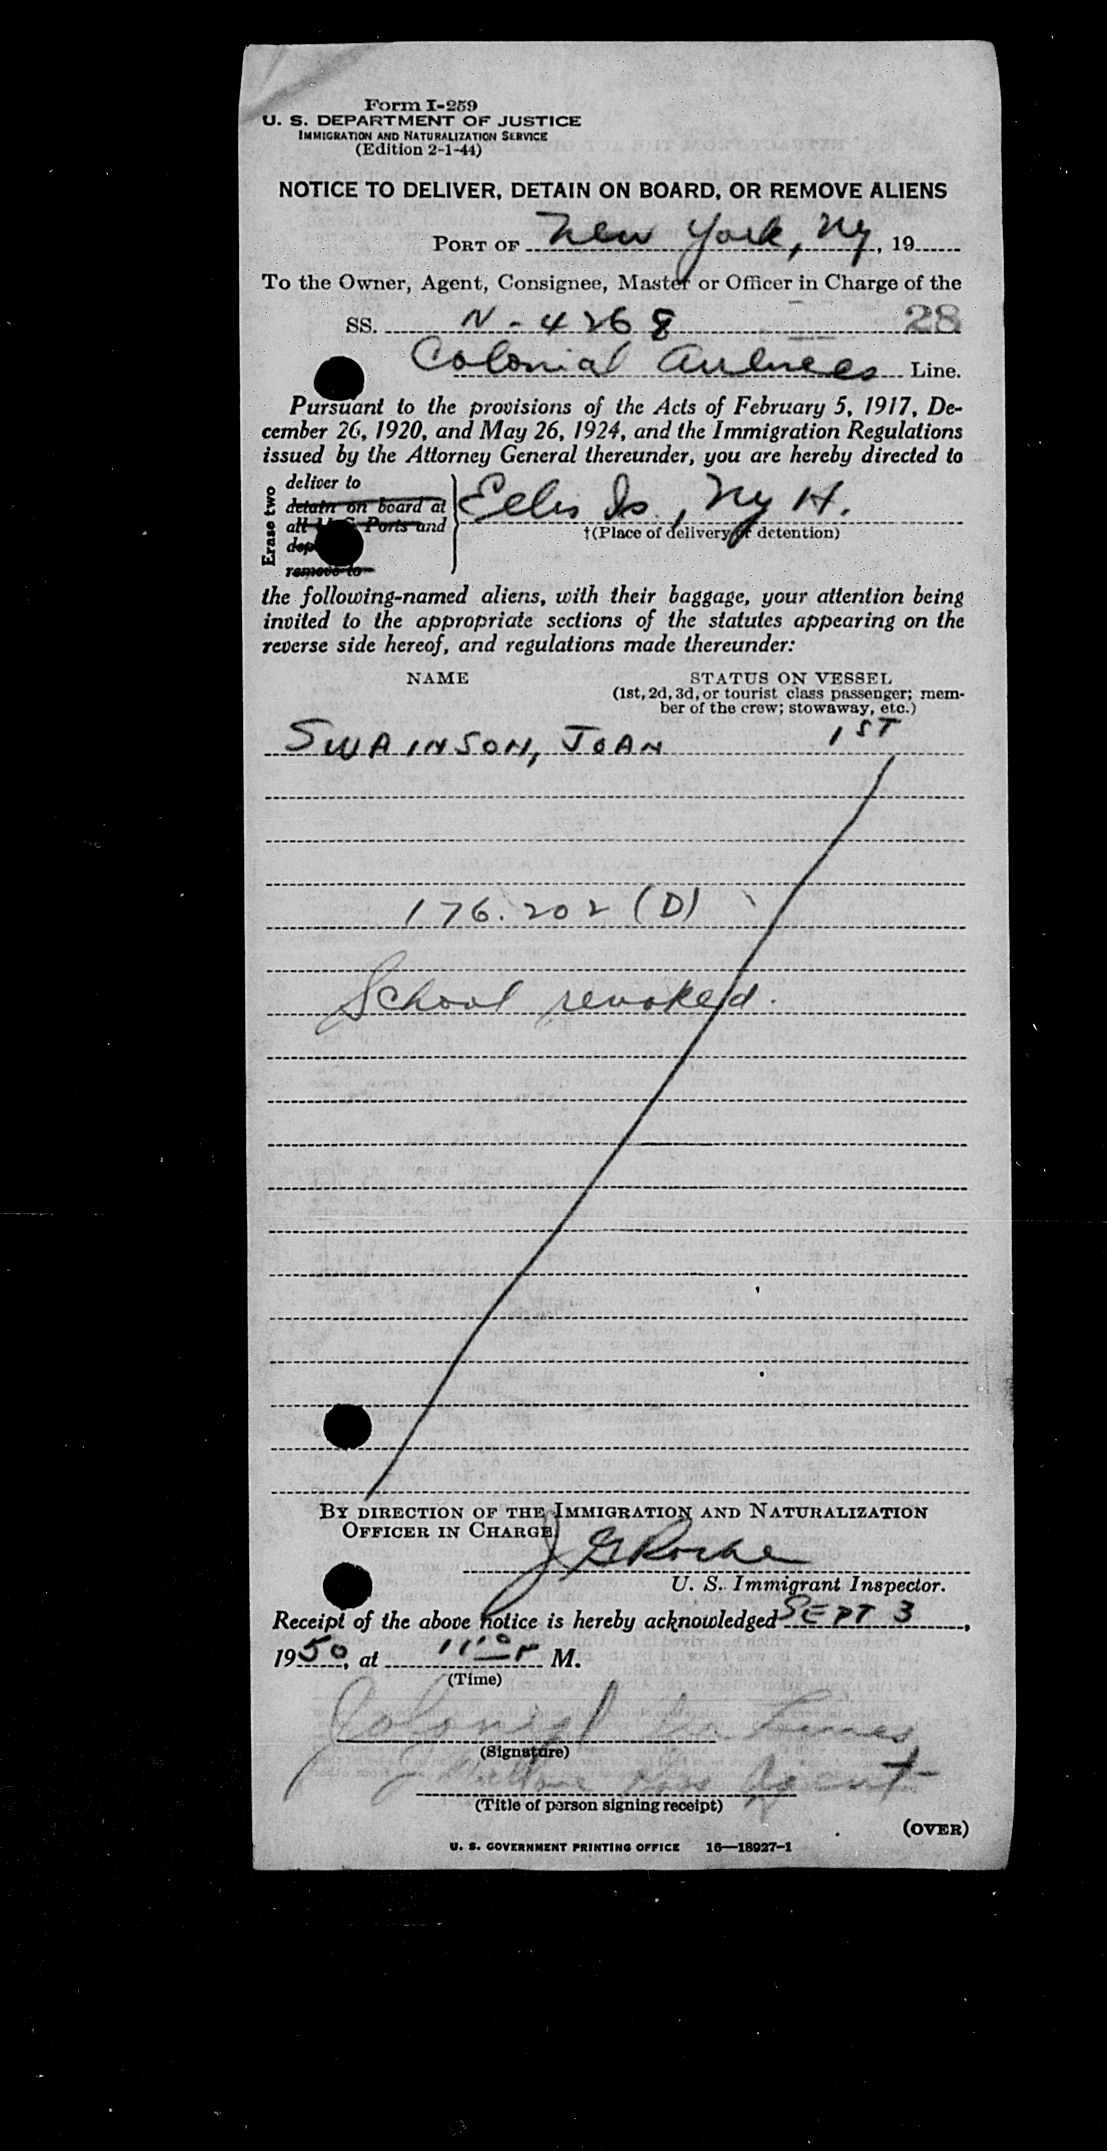 Form I-259
U. S. DEPARTMENT OF JUSTICE
IMMIGRATION AND NATURALIZATION SERVICE
(Edition 2-1-44)
NOTICE TO DELIVER, DETAIN ON BOARD, OR REMOVE ALIENS
PORT OF New York, Ny, 19
To the Owner, Agent, Consignee, Master or Officer in Charge of the
SS. N-4268 28
Colonial Airlines Line.
Pursuant to the provisions of the Acts of February 5, 1917, De-
cember 26, 1920, and May 26, 1924, and the Immigration Regulations
issued by the Attorney General thereunder, you are hereby directed to
Erase two
deliver to
detain on board at
all U. S. Ports and
remove to
Ellis Is., Ny H.
†(Place of delivery or detention)
the following-named aliens, with their baggage, your attention being
invited to the appropriate sections of the statutes appearing on the
reverse side hereof, and regulations made thereunder:
NAME STATUS ON VESSEL
(1st, 2d, 3d, or tourist class passenger; mem-
ber of the crew; stowaway, etc.)
SWAINSON, JOAN 1ST
176.202 (D)
School revoked.
BY DIRECTION OF THE IMMIGRATION AND NATURALIZATION
OFFICER IN CHARGE
J G Roche
U. S. Immigrant Inspector.
Receipt of the above notice is hereby acknowledged SEPT 3,
1950, at M.
(Time)
Colonial Air Lines
(Signature)
Agent
(Title of person signing receipt)
(OVER)
U. S. GOVERNMENT PRINTING OFFICE 16—18927-1